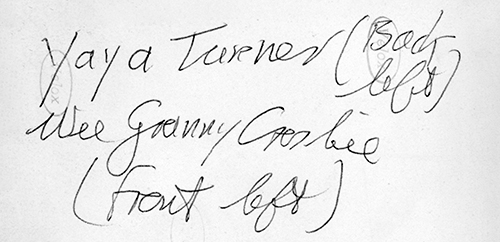 Yaya Turner (Back
left)
Wee Granny Crosbie
(front left)